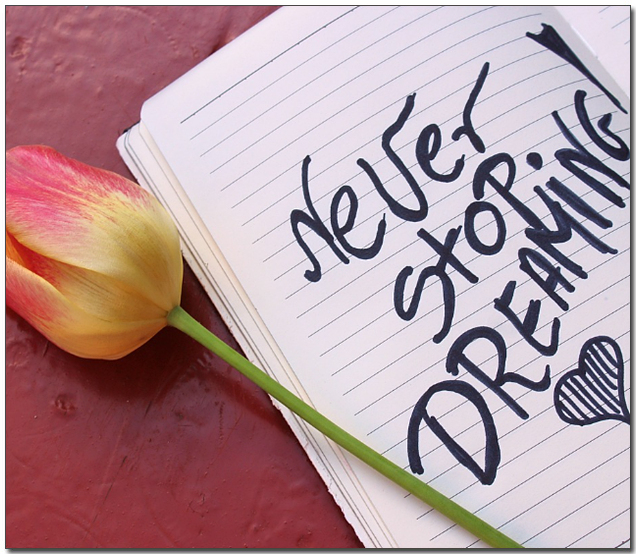 NeVer
StOP.
DREAMING!